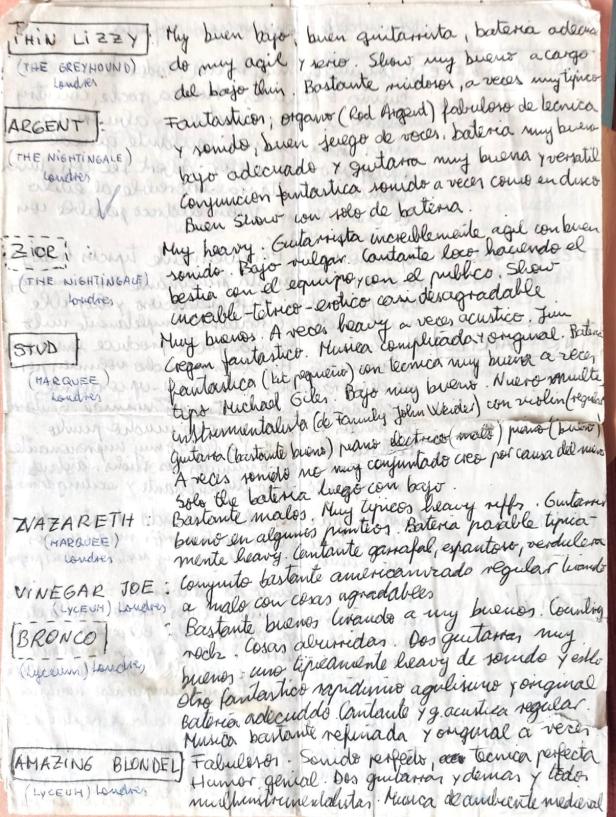 THIN LIZZY : Muy buen bajo, buen guitarrista, bateria adecua
(THE GREYHOUND) do muy agil y serio. Show muy bueno a cargo
Londres del bajo thin. Bastante ruidosos, a veces muy tipico
ARGENT : Fantasticos; organo (Rod Argent) fabuloso de tecnica
y sonido, buen juego de voces, bateria muy bueno
(THE NIGHTINGALE) bajo adecuado y guitarra muy buena y versatil
Londres Conjuncion fantastica sonido a veces como en disco
Buen Show con solo de bateria.
ZIOR : Muy heavy. Guitarrista increiblemente agil con buen
sonido. Bajo vulgar. Cantante loco haciendo el
(THE NIGHTINGALE) bestia con el equipo y con el publico. Show
Londres increible-tetrico-erotico casi desagradable
STUD : Muy buenos. A veces heavy a veces acustico. Jim
Cregan fantastico. Musica complicada y original. Bateria
(MARQUEE) fantastica (kit pequeño) con tecnica muy buena a veces
Londres tipo Michael Giles. Bajo muy bueno. Nuevo multe
instrumentalista (de Family John Weider) con violin (regular)
guitarra (bastante bueno) piano electrico (malo) piano (bueno)
A veces sonido no muy conjuntado creo por causa del nuevo
Solo the bateria luego con bajo.
NAZARETH : Bastante malos. Muy tipicos heavy riffs. Guitarra
(MARQUEE) bueno en algunos punteos. Bateria pasable tipica-
Londres mente heavy. Cantante garrafal, espantoso, verdulera
VINEGAR JOE : Conjunto bastante americanizado regular tirando
(LYCEUM) Londres a malo con cosas agradables
BRONCO : Bastante buenos tirando a muy buenos. Country-
rock. Cosas aburridas. Dos guitarras muy
(Lyceum) Londres buenos: uno tipicamente heavy de sonido y estilo
Otro fantastico rapidisimo agilisimo y original
Bateria adecuddo Cantante y g. acustica regular.
Musica bastante refinada y original a veces
AMAZING BLONDEL : Fabulosos. Sonido perfecto, tecnica perfecta
Humor genial. Dos guitarras y demas y todos
(LYCEUM) Londres multiinstrumentalistas. Musica de ambiente medieval